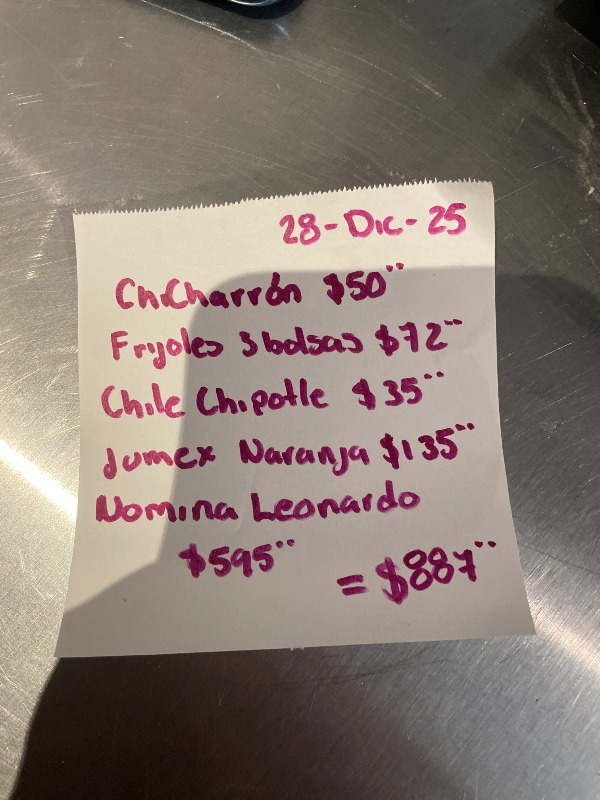 28-Dic-25
Chicharrón $50°°
Frijoles 3 bolsas $72°°
Chile Chipotle $35°°
Jumex Naranja $135°°
Nomina Leonardo
$595°°
= $887°°